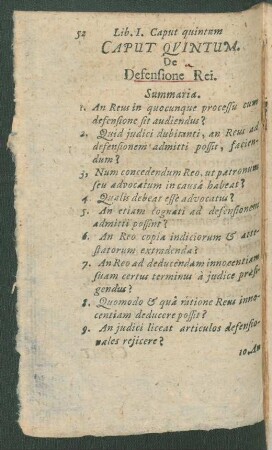 52 Lib. I. Caput quintum
CAPUT QVINTUM.
De
Defensione Rei.
Summaria.
1. An Reus in quocunque processu cum
defensione sit audiendus?
2. Quid judici dubitanti, an Reus ad
defensionem admitti possit, facien-
dum?
3. Num concedendum Reo, ut patronum
seu advocatum in causâ habeat?
4. Qualis debeat esse advocatus?
5. An etiam cognati ad defensionem
admitti possint?
6. An Reo copia indiciorum & atte-
statorum extradenda?
7. An Reo ad deducendam innocentiam
suam certus terminus à judice præfi-
gendus?
8. Quomodo & quâ ratione Reus inno-
centiam deducere possit?
9. An judici liceat articulos defensio-
nales rejicere?
10. An